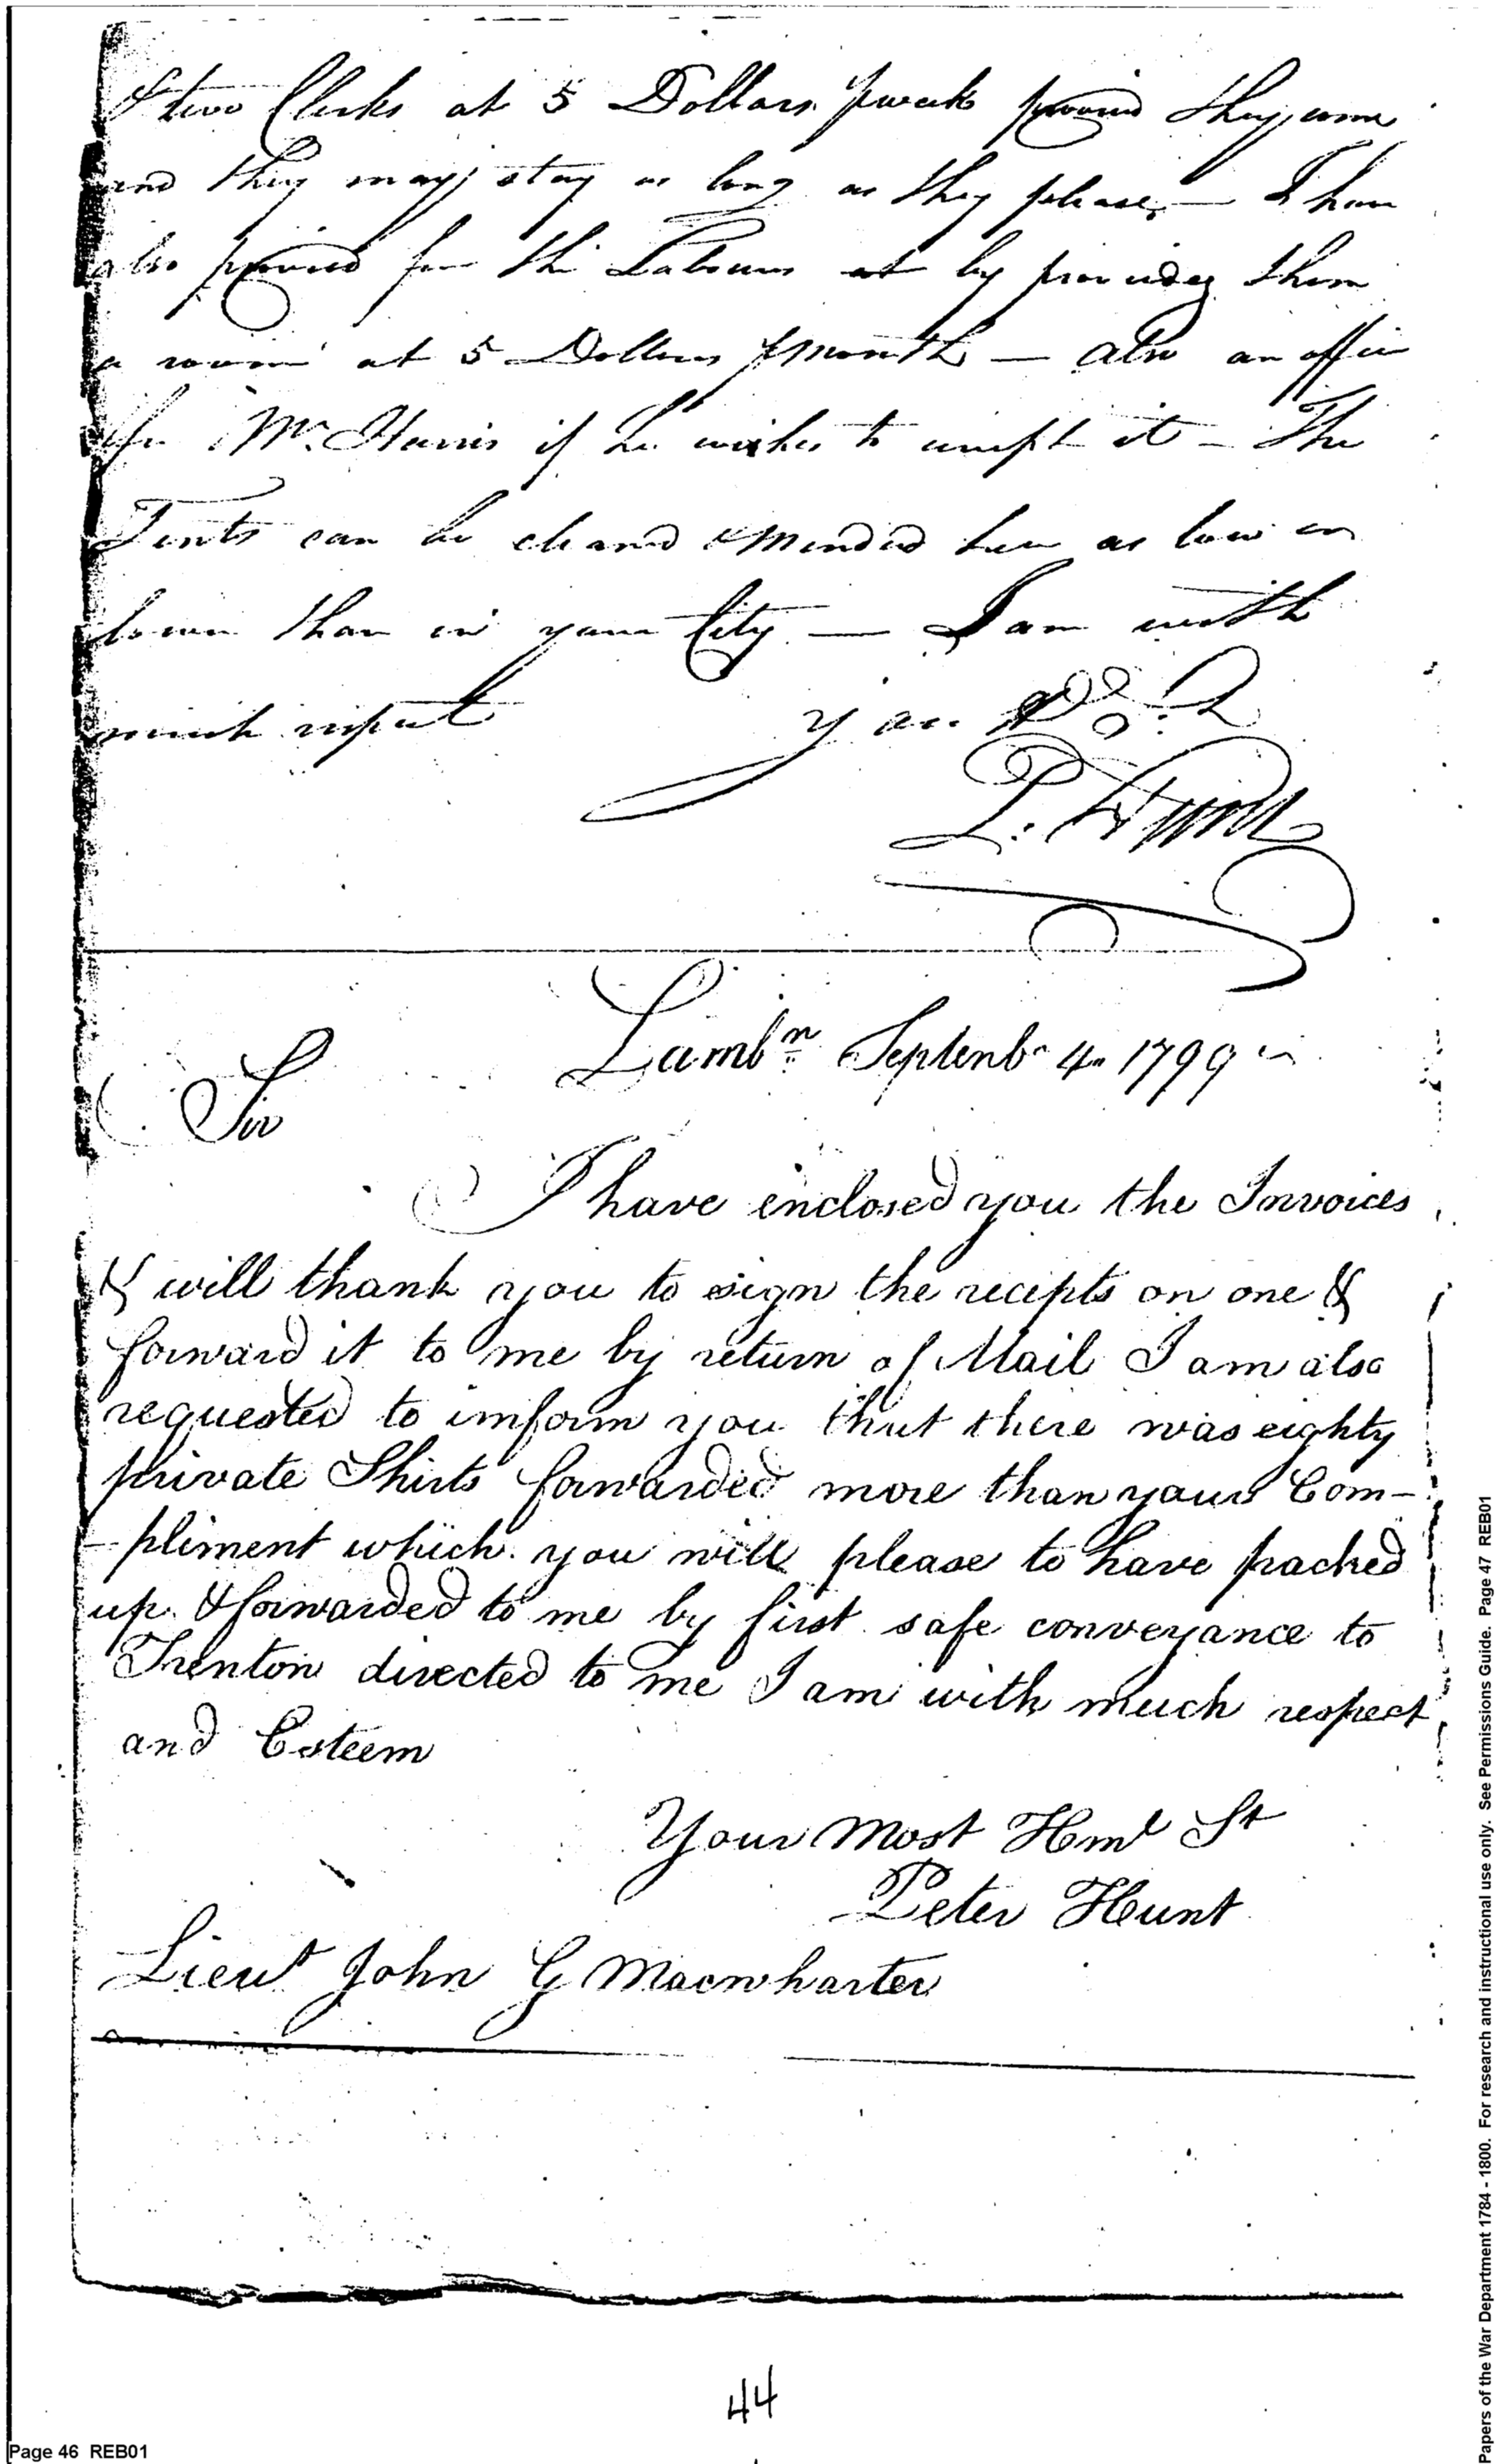 & two Clerks at 5 Dollars pr week provid they come
and they may stay as long as they please, — I have
also provid for the Labourers at by providg them
a room at 5 Dollars pr month — also an office
for Mr. Harris if he wishes to accept it — The
Tents can be cleand & mended here as low or
lower than in your City — I am with
much respect your
P. Hunt
Lambn. Septenbr 4n 1799
Sir
I have enclosed you the Invoices
& will thank you to sign the recipts on one &
forward it to me by return of Mail I am also
requested to imform you that there was eighty
private Shirts forwarded more than your Com-
-pliment which you will please to have packed
up & forwarded to me by first safe conveyance to
Trenton directed to me I am with much respect
and Esteem
Your Most Hml St
Peter Hunt
Lieut John G Macwharter
44
Page 46 REB01
Papers of the War Department 1784 - 1800. For research and instructional use only. See Permissions Guide. Page 47 REB01